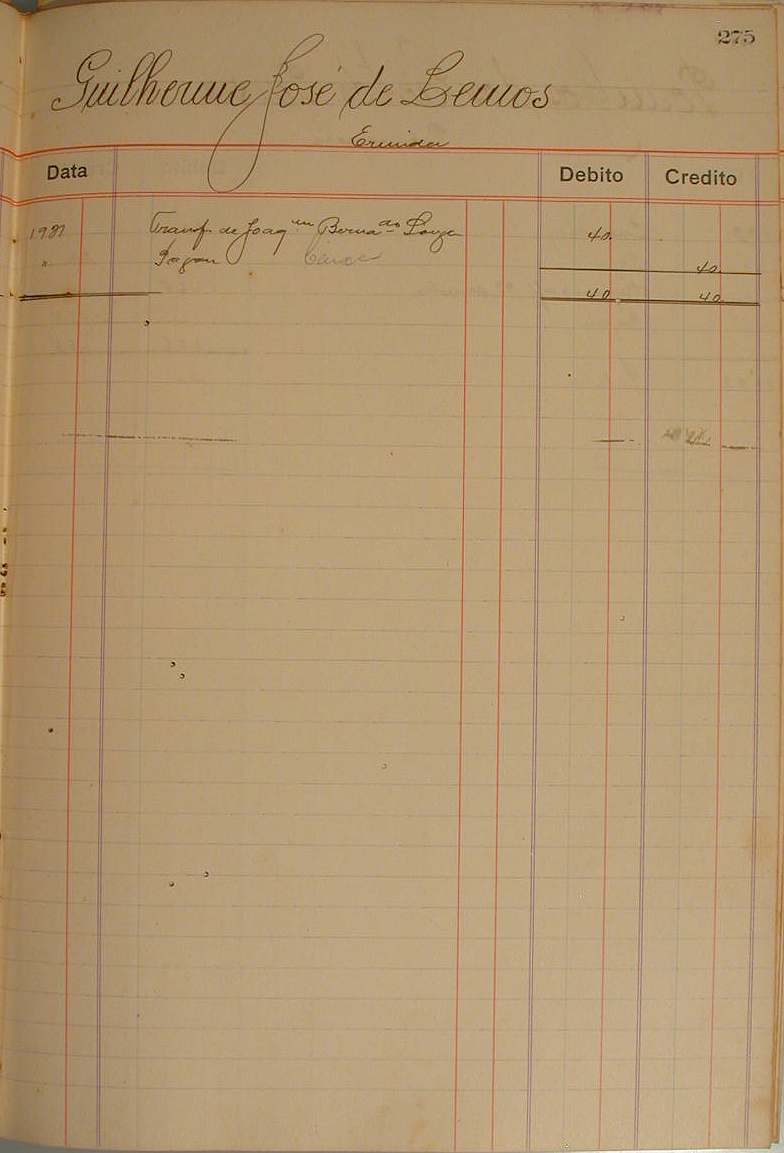 275
Guilherme José de Lemos
Ermida
Data Debito Credito
Transf. de Joaqm Bernado Souza 40.
" Pagou 40.
40. 40.